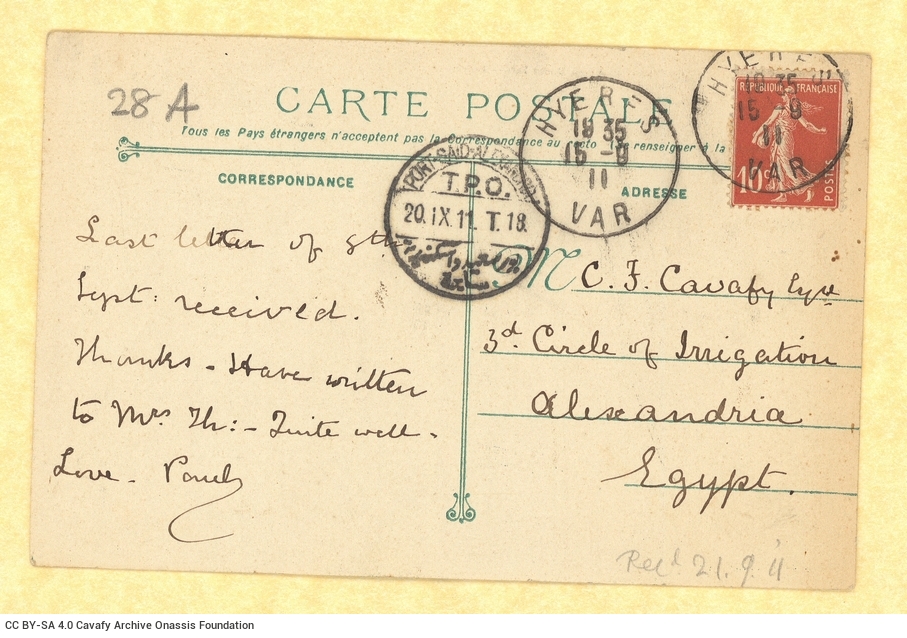 28 A
CARTE POSTALE
Tous les Pays étrangers n'acceptent pas la Correspondance au recto (se renseigner à la
CORRESPONDANCE
ADRESSE
HYERES
19 35
15 - 9
11
VAR
HYERES
19 35
15 - 9
11
VAR
REPUBLIQUE FRANÇAISE
10 c
POSTES
PORT-SAID-ALEXANDRIA
T.P.O.
20. IX. 11. T. 18.
Last letter of 9th
Sept: received.
Thanks - Have written
to Mrs Th: - Quite well -
Love - Paul
M C. F. Cavafy Esqre
3d. Circle of Irrigation
Alexandria
Egypt.
Recd 21. 9. 11
CC BY-SA 4.0 Cavafy Archive Onassis Foundation